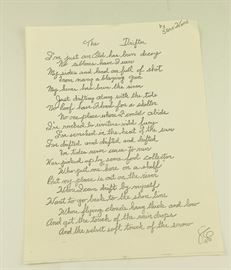 by
Steve Ward
The Drifter
I'm just an Old has been decoy
No ribbons have I won
My sides and head are full of shot
From many a blazing gun
My home has been the river
Just drifting along with the tide
No roof have I had for a shelter
No one place where I could abide
I've rocked to winters wild fury
I've scorched in the heat of the sun
I've drifted and drifted and drifted
For tides never cease to run
I was picked up by some fool collector
Who put me here on a shelf
But my place is out on the river
Where I can drift by myself
I want to go back to the shore line
Where flying clouds hang thick and low
And get the touch of the rain drops
And the velvet soft touch of the snow